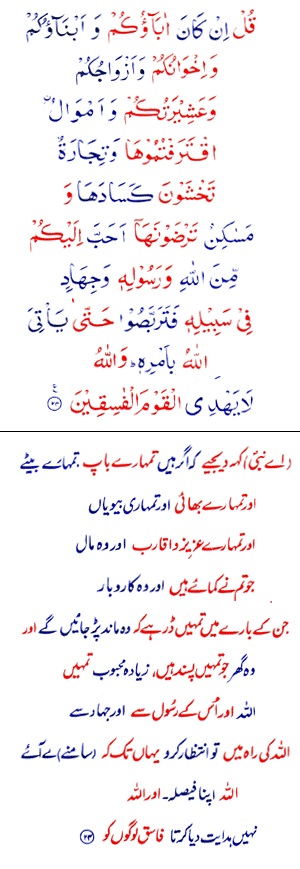 قُلْ اِنْ كَانَ اٰبَآؤُكُمْ وَ اَبْنَآؤُكُمْ
وَاِخْوَانُكُمْ وَاَزْوَاجُكُمْ
وَعَشِيْرَتُكُمْ وَاَمْوَالُ ۨ
اقْتَرَفْتُمُوْهَا وَتِجَارَةٌ
تَخْشَوْنَ كَسَادَهَا وَ
مَسٰكِنُ تَرْضَوْنَهَآ اَحَبَّ اِلَيْكُمْ
مِّنَ اللهِ وَرَسُوْلِهٖ وَجِهَادٍ
فِيْ سَبِيْلِهٖ فَتَرَبَّصُوْا حَتّٰى يَاْتِيَ
اللهُ بِاَمْرِهٖ ؕ وَاللهُ
لَا يَهْدِى الْقَوْمَ الْفٰسِقِيْنَ ﴿۲۴﴾
(اے نبیؐ) کہہ دیجیے کہ اگر ہیں تمہارے باپ تمہارے بیٹے
اور تمہارے بھائی اور تمہاری بیویاں
اور تمہارے عزیز و اقارب اور وہ مال
جو تم نے کمائے ہیں اور وہ کاروبار
جن کے بارے میں تمہیں ڈر ہے کہ وہ ماند پڑ جائیں گے اور
وہ گھر جو تمہیں پسند ہیں، زیادہ محبوب تمہیں
اللہ اور اُس کے رسُول سے اور جہاد سے
اللہ کی راہ میں تو انتظار کرو یہاں تک کہ (سامنے) لے آئے
اللہ اپنا فیصلہ۔ اور اللہ
نہیں ہدایت دیا کرتا فاسق لوگوں کو ﴿۲۴﴾